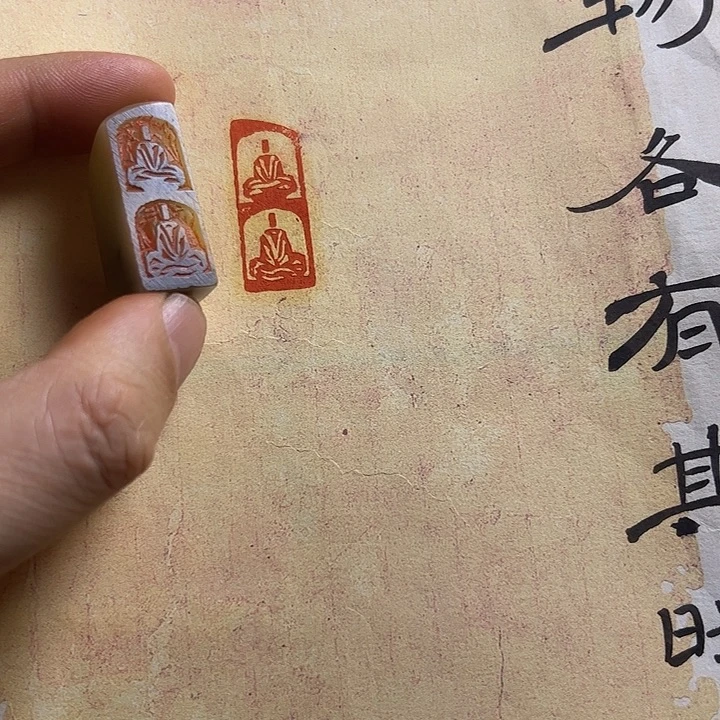 物各有其时